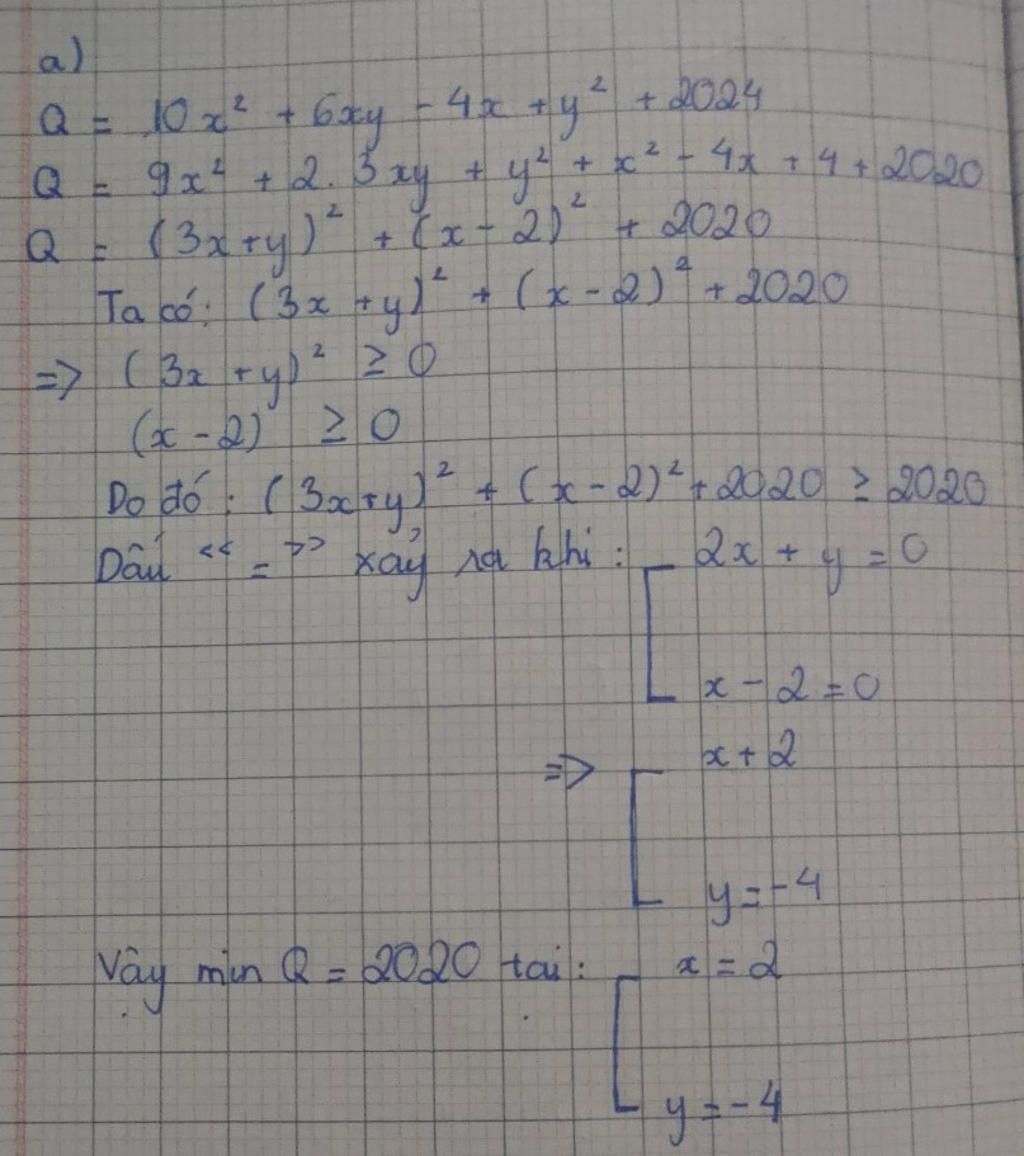 a)
Q = 10x² + 6xy - 4x + y² + 2024
Q = 9x² + 2. 3xy + y² + x² - 4x + 4 + 2020
Q = (3x+y)² + (x - 2)² + 2020
Ta có: (3x + y)² + (x - 2)² + 2020
=> (3x + y)² ≥ 0
(x - 2) ≥ 0
Do đó: (3x+y)² + (x - 2)² + 2020 ≥ 2020
Dấu "=" xảy ra khi: [ 2x + y = 0
x - 2 = 0
=> [ x + 2
y = -4
Vậy min Q = 2020 tại: [ x = 2
y = -4